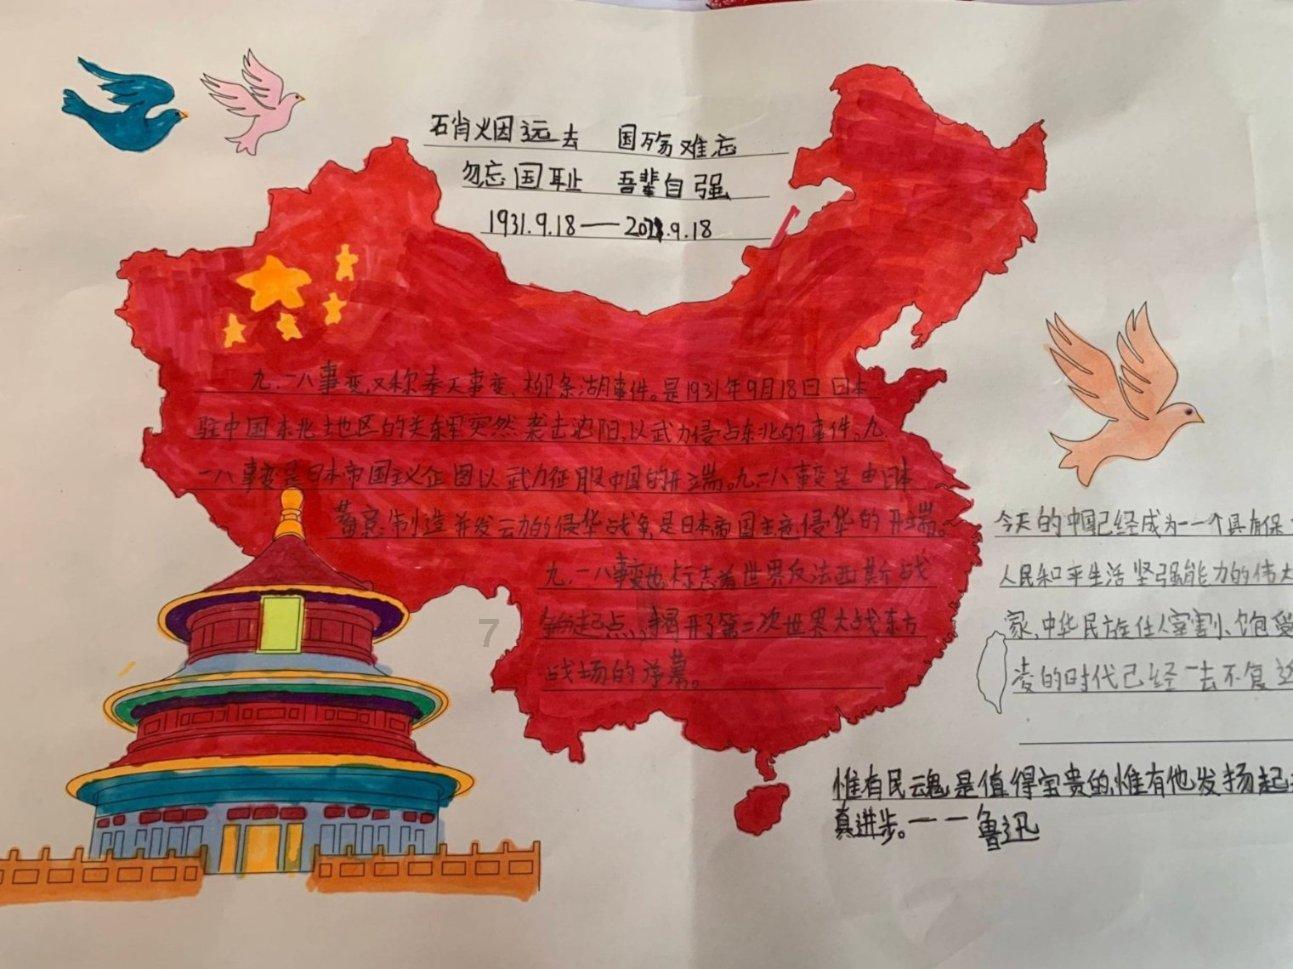 硝烟远去 国殇难忘
勿忘国耻 吾辈自强
1931.9.18——2021.9.18
九.一八事变,又称奉天事变、柳条湖事件。是1931年9月18日日本
驻中国东北地区的关东军突然袭击沈阳,以武力侵占东北的事件。九
一八事变是日本帝国主义企图以武力征服中国的开端。九一八事变是由日本
蓄意制造并发动的侵华战争是日本帝国主义侵华的开端。
九.一八事变也标志着世界反法西斯战
争的起点,揭开了第二次世界大战东方
战场的序幕。
7
今天的中国已经成为一一个具有保
人民和平生活坚强能力的伟大
家,中华民族任人宰割、饱受
凌的时代已经一去不复返
惟有民魂是值得宝贵的,惟有他发扬起
真进步。——鲁迅